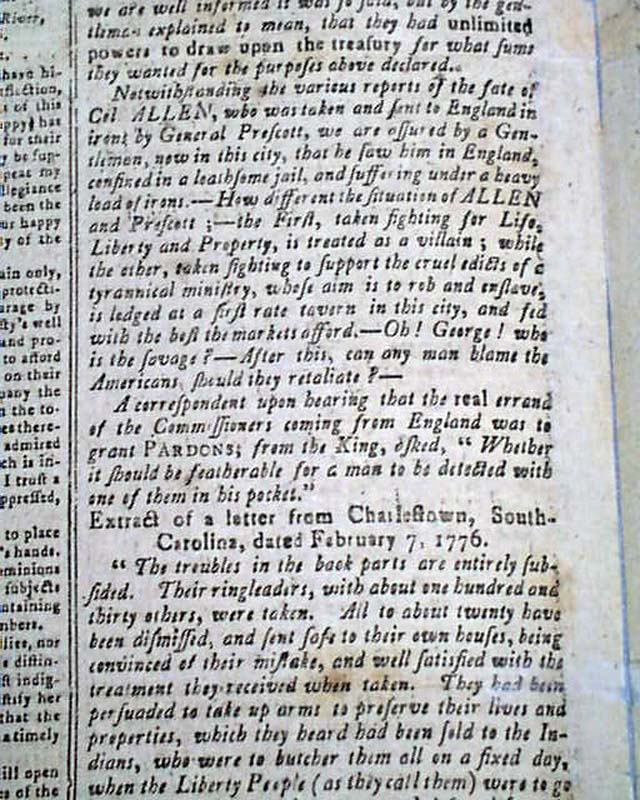 River,
we are well informed it was so said, but by the gen-
tleman explained to mean, that they had unlimited
powers to draw upon the treasury for what sums
they wanted for the purposes above declared.
Notwithstanding the various reports of the fate of
Col ALLEN, who was taken and sent to England in
irons by General Prescott, we are assured by a Gen-
tleman, now in this city, that he saw him in England,
confined in a loathsome jail, and suffering under a heavy
load of irons.—How different the situation of ALLEN
and Prescott ;—the First, taken fighting for Life,
Liberty and Property, is treated as a villain ; while
the other, taken fighting to support the cruel edicts of a
tyrannical ministry, whose aim is to rob and enslave,
is lodged at a first rate tavern in this city, and fed
with the best the markets afford.—Oh ! George ! who
is the savage ?—After this, can any man blame the
Americans, should they retaliate ?—
A correspondent upon hearing that the real errand
of the Commissioners coming from England was to
grant PARDONS; from the King, asked, “ Whether
it should be featherable for a man to be detected with
one of them in his pocket.”
Extract of a letter from Charlestown, South-
Carolina, dated February 7, 1776.
“ The troubles in the back parts are entirely sub-
sided. Their ringleaders, with about one hundred and
thirty others, were taken. All to about twenty have
been dismissed, and sent safe to their own houses, being
convinced of their mistake, and well satisfied with the
treatment they received when taken. They had been
persuaded to take up arms to preserve their lives and
properties, which they heard had been sold to the In-
dians, who were to butcher them all on a fixed day,
when the Liberty People (as they call them) were to go